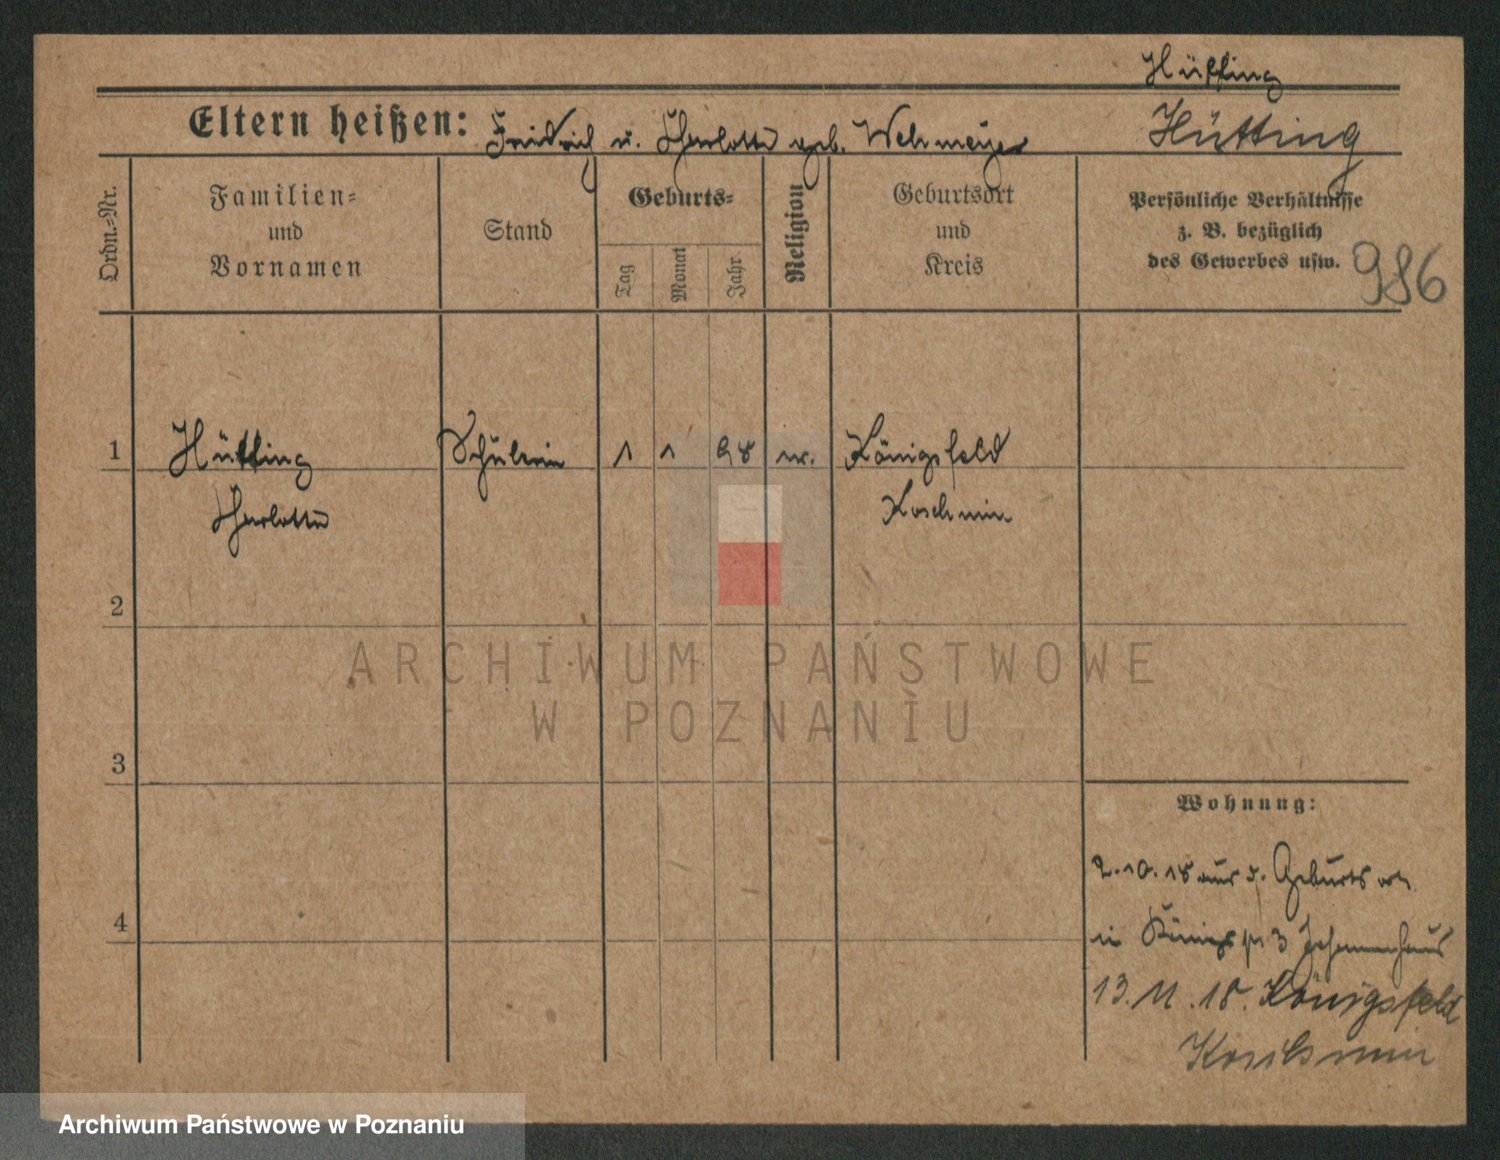 Hütting
Eltern heißen: Friedrich u. Charlotte geb. Wehmeyer Hütting
Ordn.-Nr.
Familien-
und
Vornamen
Stand
Geburts-
Tag
Monat
Jahr
Religion
Geburtsort
und
Kreis
Persönliche Verhältnisse
z. B. bezüglich
des Gewerbes usw.
986
1 Hütting Schülerin 1 1 98 ev. Königsfeld
Charlotte Koschmin
2
3
4
Wohnung:
2.10.18 aus d. Geburtsort
in 3 Johannenhaus
13.11.18. Königsfeld
Koschmin
ARCHIWUM PAŃSTWOWE
W POZNANIU
Archiwum Państwowe w Poznaniu